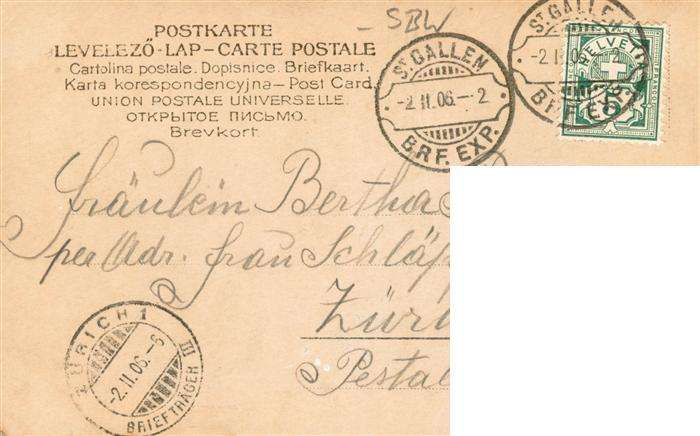 POSTKARTE
LEVELEZŐ-LAP-CARTE POSTALE
Cartolina postale. Dopisnice. Briefkaart.
Karta korespondencyjna-Post Card.
UNION POSTALE UNIVERSELLE.
ОТКРЫТОЕ ПИСЬМО.
Brevkort.
SBW
ST. GALLEN
-2.II.06.-2
BRF. EXP.
ST. GALLEN
-2.II.06.-2
BRF. EXP.
HELVETIA
5
Fräulein Bertha
per Adr. Frau Schläp
Züri
Pestal
ZÜRICH 1
-2.II.06.-6
III
BRIEFTRÄGER